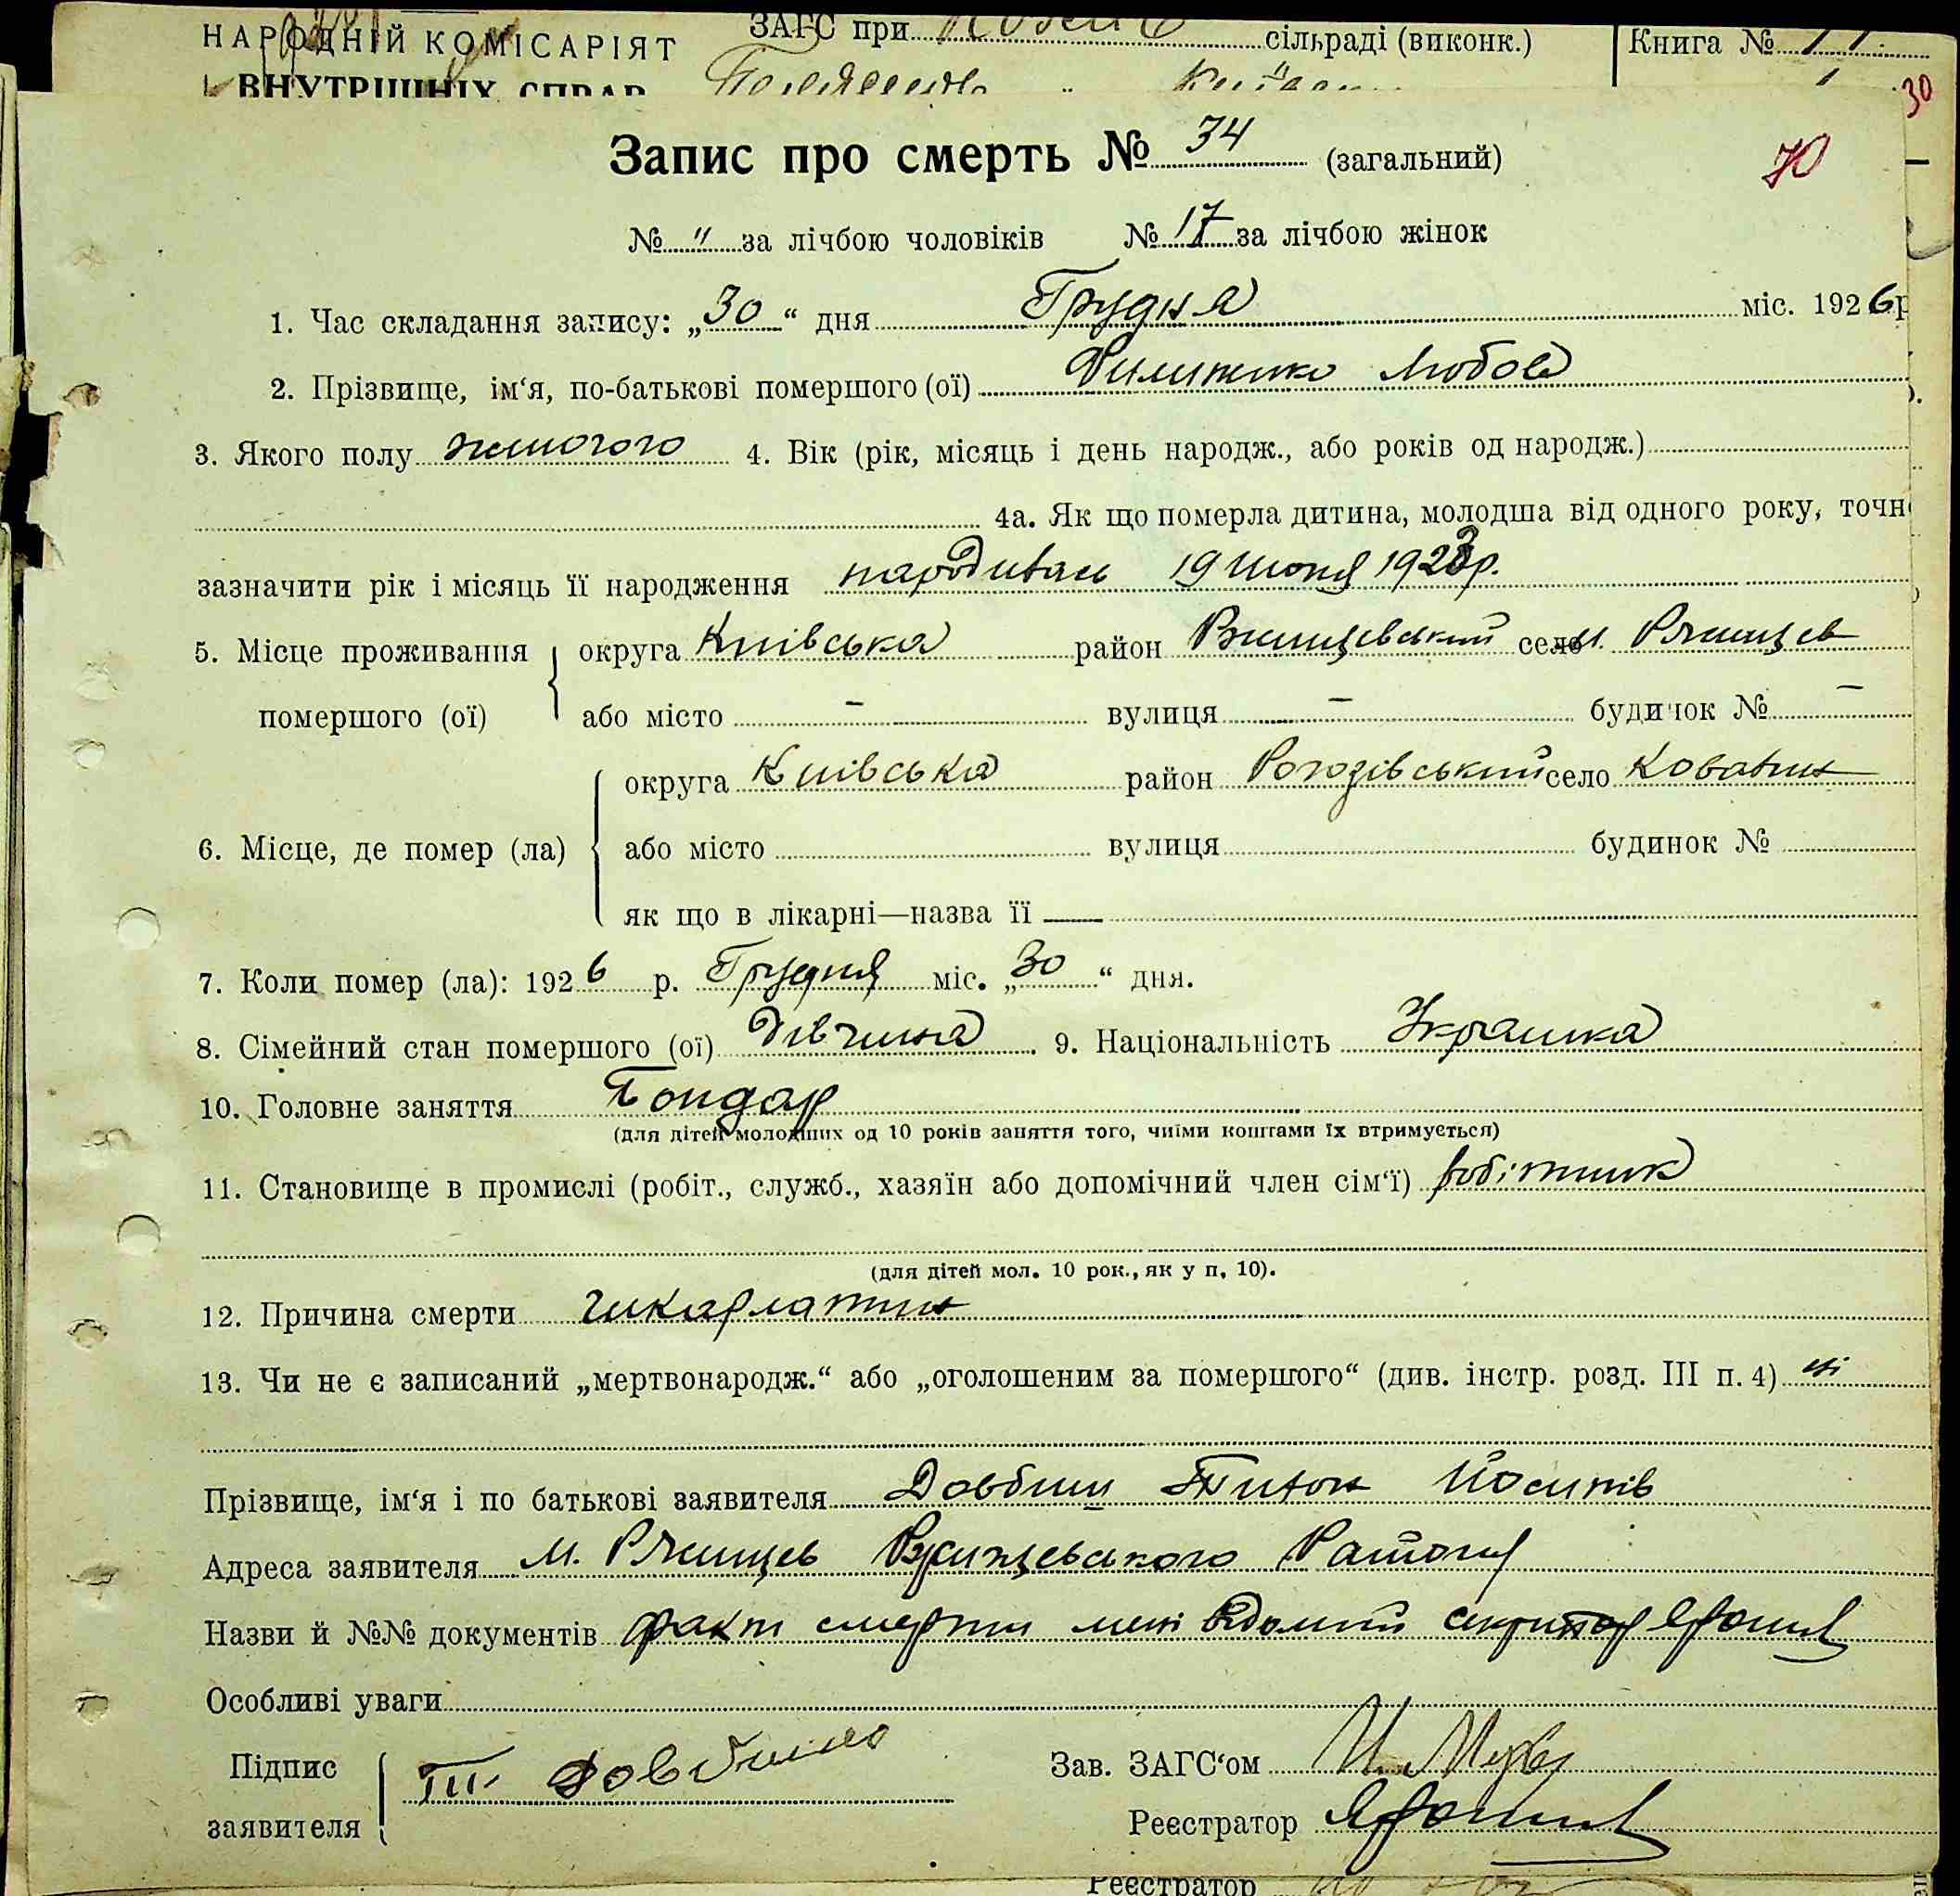 НАРОДНІЙ КОМІСАРІЯТ ЗАГС при сільраді (виконк.) Книга №
ВНУТРІШНІХ СПРАВ
30
Запис про смерть № 34 (загальний) 70
№ " за лічбою чоловіків № 17 за лічбою жінок
1. Час складання запису: „30“ дня Грудня міс. 1926 р
2. Прізвище, ім‘я, по-батькові помершого (ої) Любов
3. Якого полу жиночого 4. Вік (рік, місяць і день народж., або років од народж.)
4а. Як що померла дитина, молодша від одного року, точн
зазначити рік і місяць її народження народилась 19 июня 1923 р.
5. Місце проживання округа Київська район Ржищевський село м. Ржищев
помершого (ої) або місто – вулиця – будинок № –
округа Київська район Рогозівський село Ковалин
6. Місце, де помер (ла) або місто вулиця будинок №
як що в лікарні—назва її
7. Коли помер (ла): 1926 р. Грудня міс. „30“ дня.
8. Сімейний стан помершого (ої) Дівчина 9. Національність Украинка
10. Головне заняття Бондар
(для дітей молодших од 10 років заняття того, чиїми коштами їх втримується)
11. Становище в промислі (робіт., служб., хазяїн або допомічний член сім‘ї) робітник
(для дітей мол. 10 рок., як у п, 10).
12. Причина смерти шкарлатина
13. Чи не є записаний „мертвонародж.“ або „оголошеним за помершого“ (див. інстр. розд. III п. 4) ні
Прізвище, ім‘я і по батькові заявителя Довбиш Йосипів
Адреса заявителя м. Ржищев Ржищевського Району
Назви й №№ документів факт смерти мені відомий секритар
Особливі уваги
Підпис Зав. ЗАГС‘ом
заявителя Реєстратор
Реєстратор